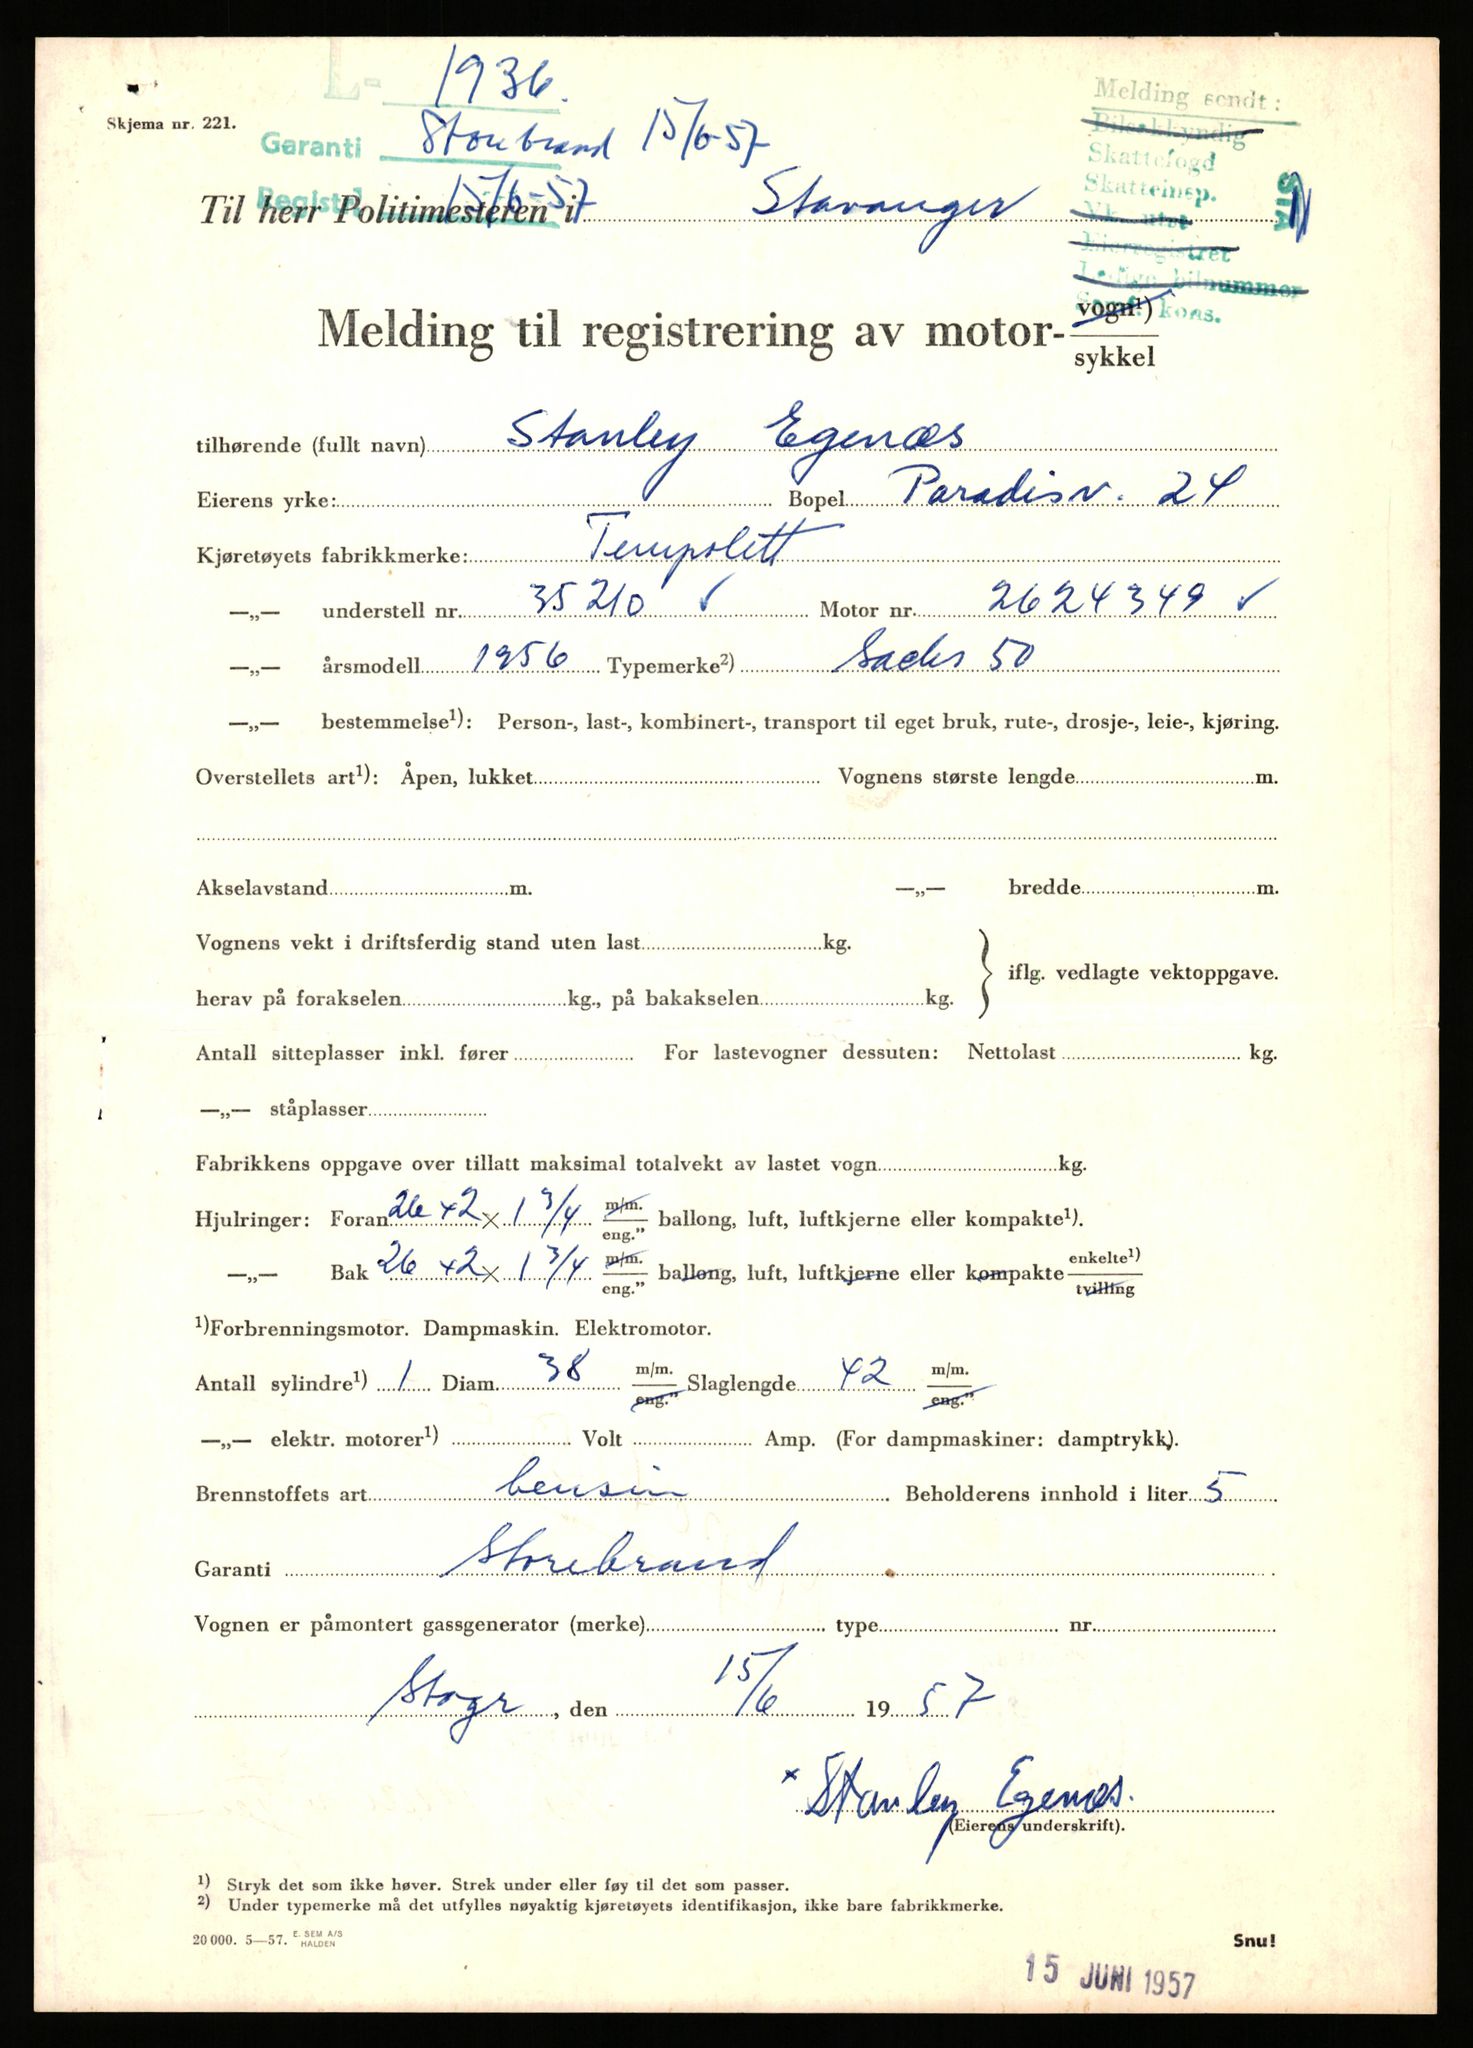 L- 1936.
Skjema nr. 221.
Garanti Storebrand 15/6-57
Registr. 15/6-57
Melding sendt:
Bilsakkyndig
Skattefogd
Skatteinsp.
Vk. utst
Eierregistret
Ledige bilnummer
Samf. kons.
Til herr Politimesteren i Stavanger
Melding til registrering av motor- vogn¹) sykkel
tilhørende (fullt navn) Stanley Egenæs
Eierens yrke: Bopel Paradisv. 24
Kjøretøyets fabrikkmerke: Tempolett
—„— understell nr. 35210 ✓ Motor nr. 2624349 ✓
—„— årsmodell 1956 Typemerke²) Sachs 50
—„— bestemmelse¹): Person-, last-, kombinert-, transport til eget bruk, rute-, drosje-, leie-, kjøring.
Overstellets art¹): Åpen, lukket Vognens største lengde m.
Akselavstand m. —„— bredde m.
Vognens vekt i driftsferdig stand uten last kg.
iflg. vedlagte vektoppgave.
herav på forakselen kg., på bakakselen kg.
Antall sitteplasser inkl. fører For lastevogner dessuten: Nettolast kg.
—„— ståplasser
Fabrikkens oppgave over tillatt maksimal totalvekt av lastet vogn kg.
Hjulringer: Foran 26 x2 × 1 3/4 m/m. eng." ballong, luft, luftkjerne eller kompakte¹).
—„— Bak 26 x2 × 1 3/4 m/m. eng." ballong, luft, luftkjerne eller kompakte enkelte¹) tvilling
¹)Forbrenningsmotor. Dampmaskin. Elektromotor.
Antall sylindre¹) 1 Diam. 38 m/m. eng." Slaglengde 42 m/m. eng."
—„— elektr. motorer¹) Volt Amp. (For dampmaskiner: damptrykk).
Brennstoffets art bensin Beholderens innhold i liter 5
Garanti Storebrand
Vognen er påmontert gassgenerator (merke) type nr.
Stvgr, den 15/6 1957
× Stanley Egenæs.
(Eierens underskrift).
¹) Stryk det som ikke høver. Strek under eller føy til det som passer.
²) Under typemerke må det utfylles nøyaktig kjøretøyets identifikasjon, ikke bare fabrikkmerke.
20 000. 5—57. E. SEM A/S HALDEN
Snu!
15 JUNI 1957